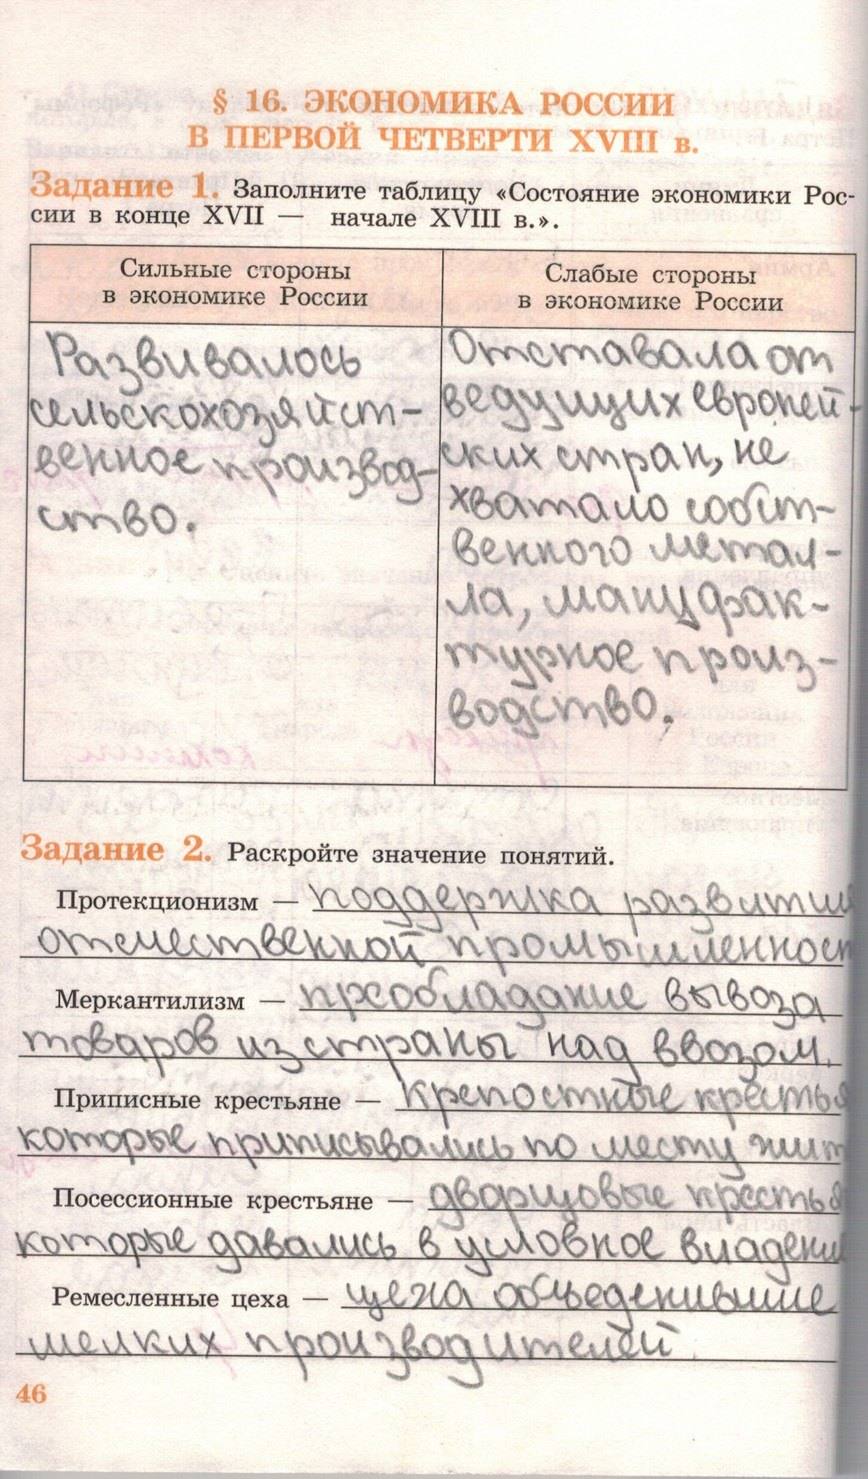 § 16. ЭКОНОМИКА РОССИИ
В ПЕРВОЙ ЧЕТВЕРТИ XVIII в.
Задание 1. Заполните таблицу «Состояние экономики Рос-
сии в конце XVII — начале XVIII в.».
Сильные стороны
в экономике России
Слабые стороны
в экономике России
Развивалось
сельскохозяйст-
венное производ-
ство.
Отставала от
ведущих европей-
ских стран, не
хватало собст-
венного метал-
ла, мануфак-
турное произ-
водство.
Задание 2. Раскройте значение понятий.
Протекционизм — поддержка развития
отечественной промышленност
Меркантилизм — преобладание вывоза
товаров из страны над ввозом.
Приписные крестьяне — крепостные крестья
которые приписывались по месту жит
Посессионные крестьяне — дворцовые крестья
которые давались в условное владени
Ремесленные цеха — цеха объеденившие
мелких производителей
46